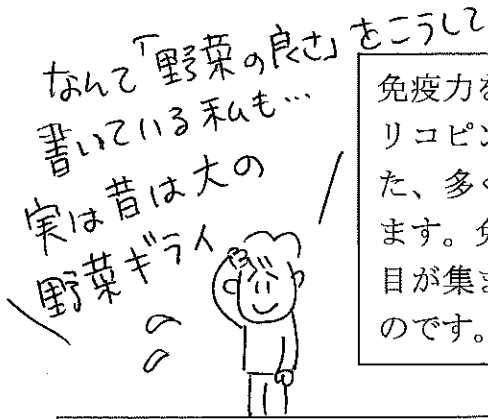 なんて「野菜の良さ」をこうして
書いている私も…
実は昔は大の
野菜ギライ
免疫力を
リコピン
た、多く
ます。免
目が集ま
のです。